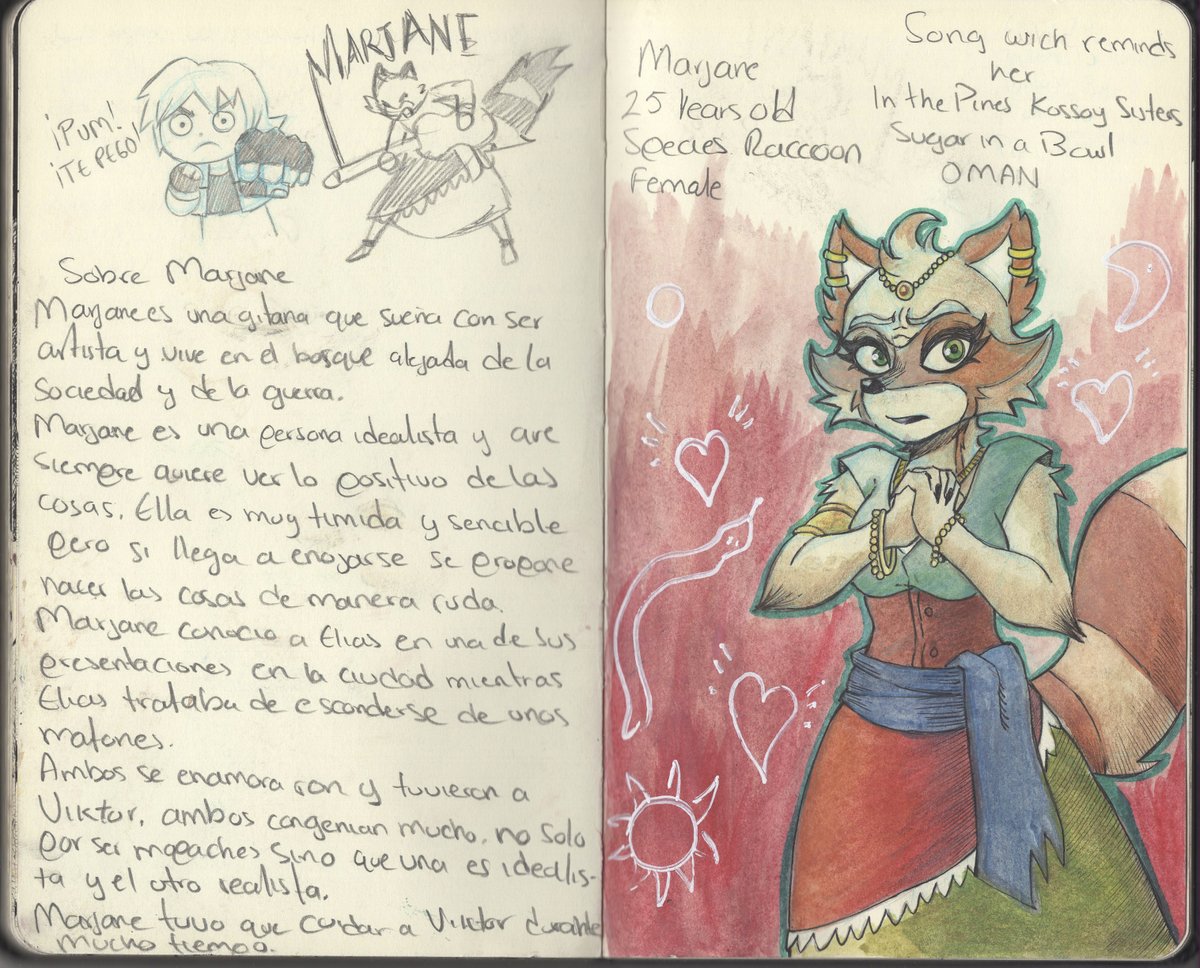 MARJANE
¡Pum!
¡TE PEGO!
Sobre Marjane
Marjane es una gitana que sueña con ser
artista y vive en el bosque alejada de la
sociedad y de la guerra.
Marjane es una persona idealista y que
siempre quiere ver lo positivo de las
cosas. Ella es muy timida y sencible
pero si llega a enojarse se propone
hacer las cosas de manera ruda.
Marjane conocio a Elias en una de sus
presentaciones en la ciudad mientras
Elias trataba de esconderse de unos
matones.
Ambos se enamoraron y tuvieron a
Viktor, ambos congenian mucho, no solo
por ser mapaches sino que una es idealis-
ta y el otro realista.
Marjane tuvo que cuidar a Viktor durante
mucho tiempo.
Marjane
25 Years old
Species Raccoon
Female
Song wich reminds
her
In the Pines Kossoy Sisters
Sugar in a Bowl
OMAN